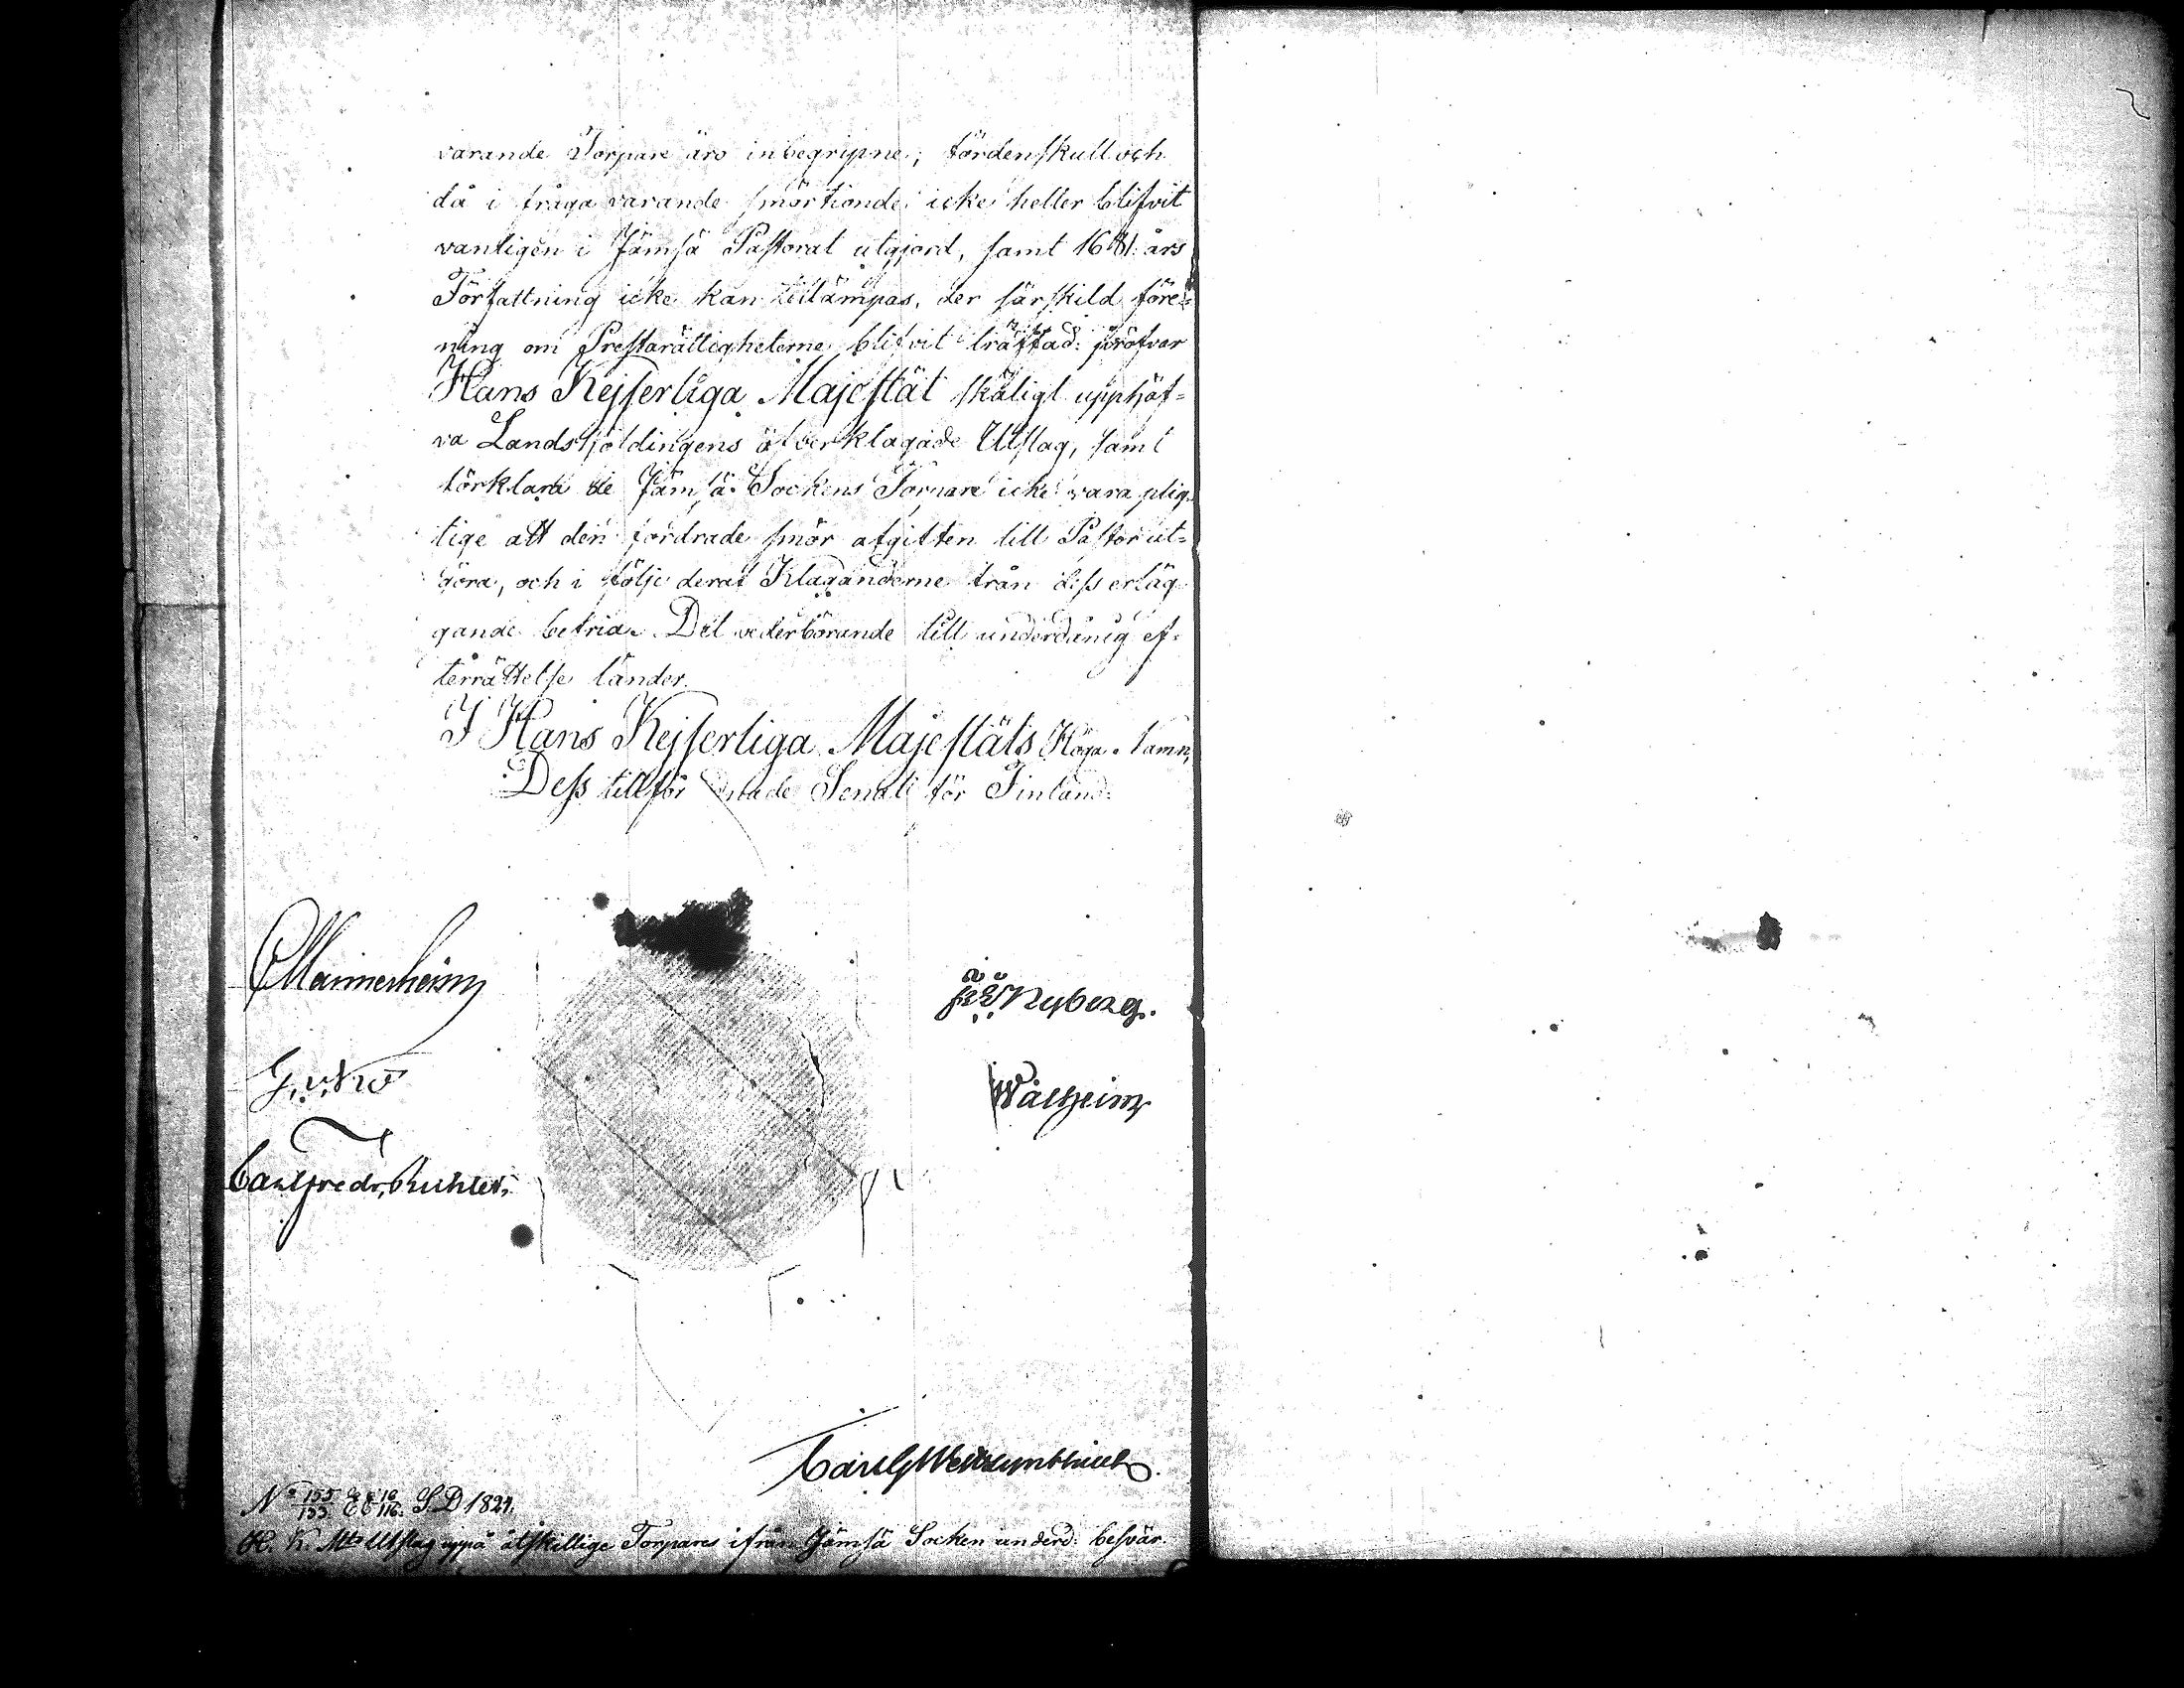 varande Torpare äro inbegripne; fördenskull och
då i fråga varande smörtionde icke heller blifvit
vanligen i Jämsä Pastorat utgjord, samt 1681 års
Författning icke kan tillämpas, der särskild före=
ning om Prestarättigheterne blifvit träffad: pröfvar
Hans Kejserliga Majestät skäligt upphäf=
va Landshöfdingens öfverklagade Utslag, samt
förklara de Jämsä Sockens Torpare icke vara plig
tige att den fordrade smör afgiften till Pastor ut=
göra, och i följe deraf Klaganderne från dess erläg
gande befria. Det vederbörande till underdånig ef=
terrättelse länder.
I Hans Kejserliga Majestäts Höga Namn,
Dess tillförordnade Senat för Finland:
CMannerheim
Nyberg.
Walheim
Carl Fredr. Richter.
No 155/155 S.D. 1824.
H. K. Mts Utslag uppå åtskillige Torpares ifrån Jämsä Socken underd: besvär.